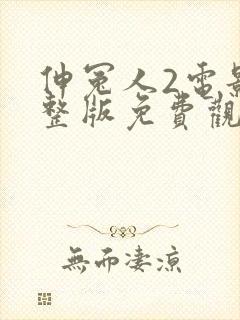 伸冤人2電影
整版免費觀
無而淒涼